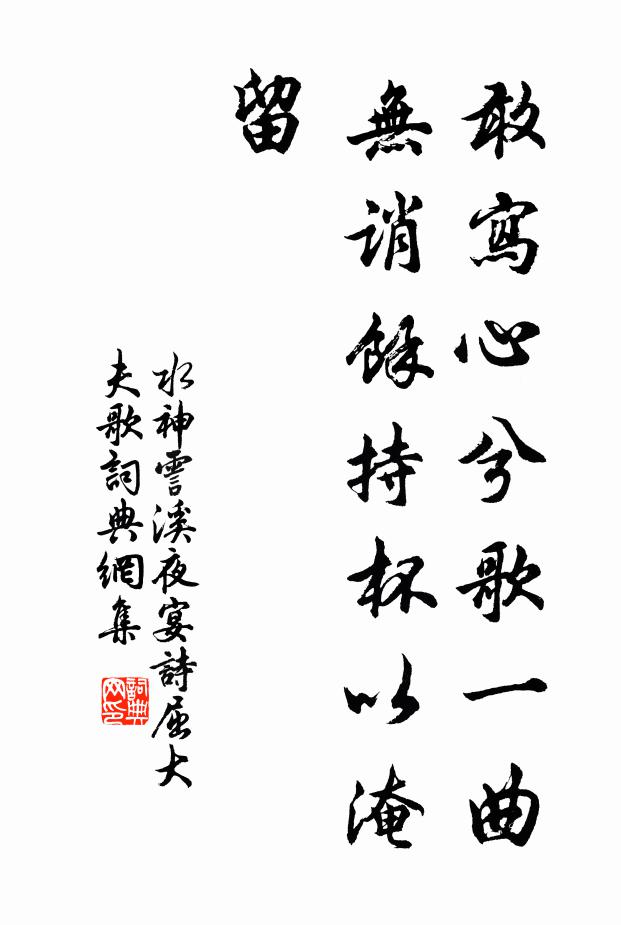 敢寫心兮歌一曲
無誚餘持杯以淹
留
水神霅溪夜宴詩屈大
夫歌詞典網集
詞典
网印